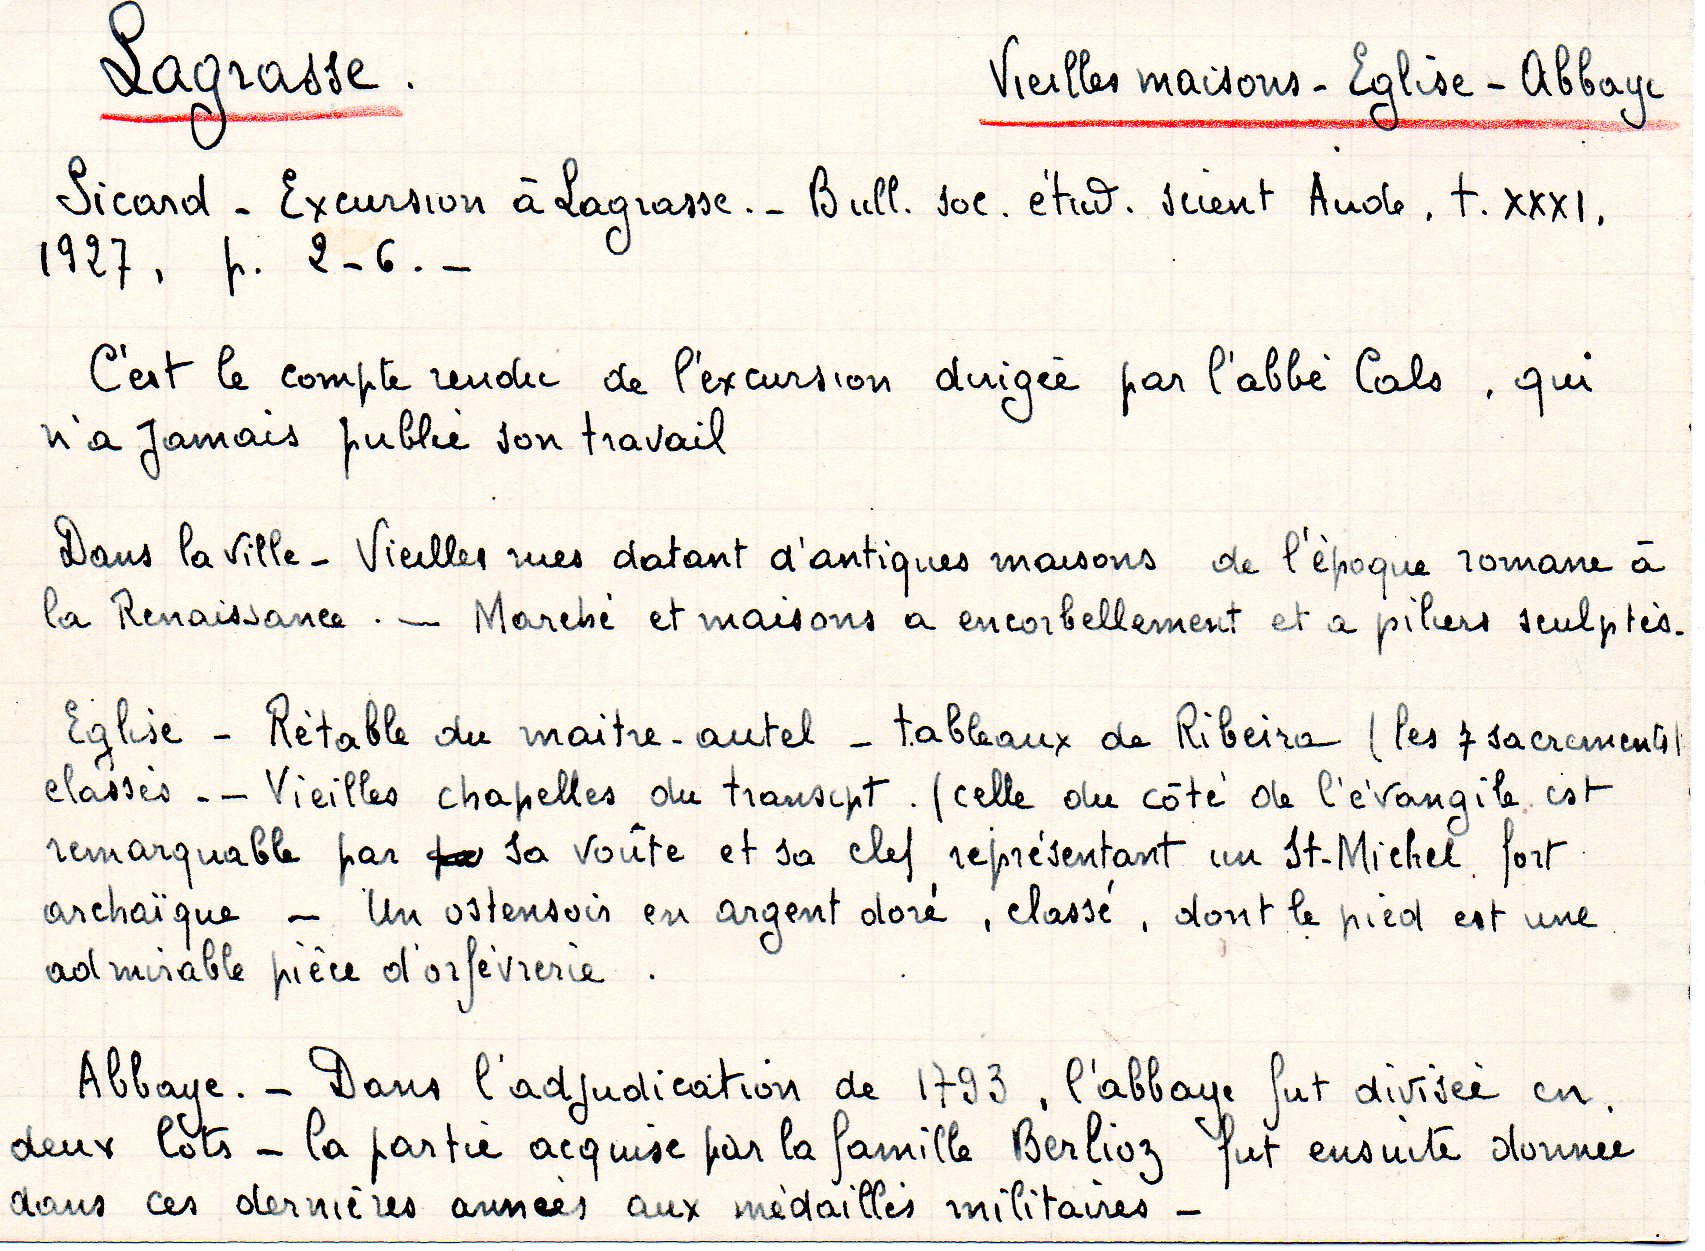 Lagrasse.
Vieilles maisons - Eglise - Abbaye
Sicard - Excursion à Lagrasse. - Bull. soc. étud. scient Aude, t. XXXI,
1927, p. 2-6. -
C'est le compte rendu de l'excursion dirigée par l'abbé Cals, qui
n'a jamais publié son travail
Dans la ville - Vieilles rues datant d'antiques maisons de l'époque romane à
la Renaissance. - Marché et maisons a encorbellement et a piliers sculptés.
Eglise - Rétable du maitre-autel - tableaux de Ribeira (les 7 sacrements)
classés. - Vieilles chapelles du transept. (celle du côté de l'évangile est
remarquable par sa voûte et sa clef représentant un St-Michel fort
archaïque - Un ostensoir en argent doré, classé, dont le pied est une
admirable pièce d'orfèvrerie.
Abbaye. - Dans l'adjudication de 1793, l'abbaye fut divisée en
deux lôts - la partie acquise par la famille Berlioz fut ensuite donnée
dans ces dernières années aux médaillés militaires -